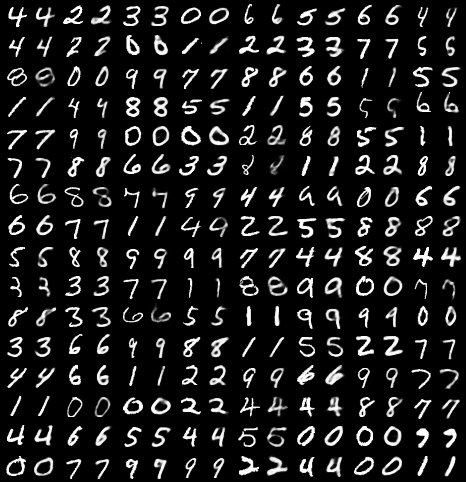 4 4 2 2 3 3 0 0 6 6 5 5 6 6 4 4
4 4 2 2 0 0 1 1 2 2 3 3 7 7 5 5
8 8 0 0 9 9 7 7 8 8 6 6 1 1 5 5
1 1 4 4 8 8 5 5 1 1 5 5 5 5 6 6
7 7 9 9 0 0 0 0 2 2 8 8 5 5 1 1
7 7 8 8 6 6 3 3 8 8 1 1 2 2 8 8
6 6 8 8 7 7 9 9 4 4 9 9 0 0 6 6
6 6 7 7 1 1 4 9 2 2 5 5 8 8 8 8
5 5 8 8 9 9 9 9 7 7 4 4 8 8 4 4
3 3 3 3 7 7 1 1 8 8 9 9 0 0 7 7
8 8 3 3 6 6 5 5 1 1 9 9 9 9 0 0
3 3 6 6 9 9 8 8 1 1 5 5 2 2 7 7
4 4 6 6 1 1 2 2 9 9 6 6 9 9 7 7
1 1 0 0 0 0 2 2 4 4 4 4 8 8 7 7
4 4 6 6 5 5 4 4 5 5 0 0 0 0 7 7
0 0 7 7 9 9 9 9 2 2 4 4 0 0 1 1